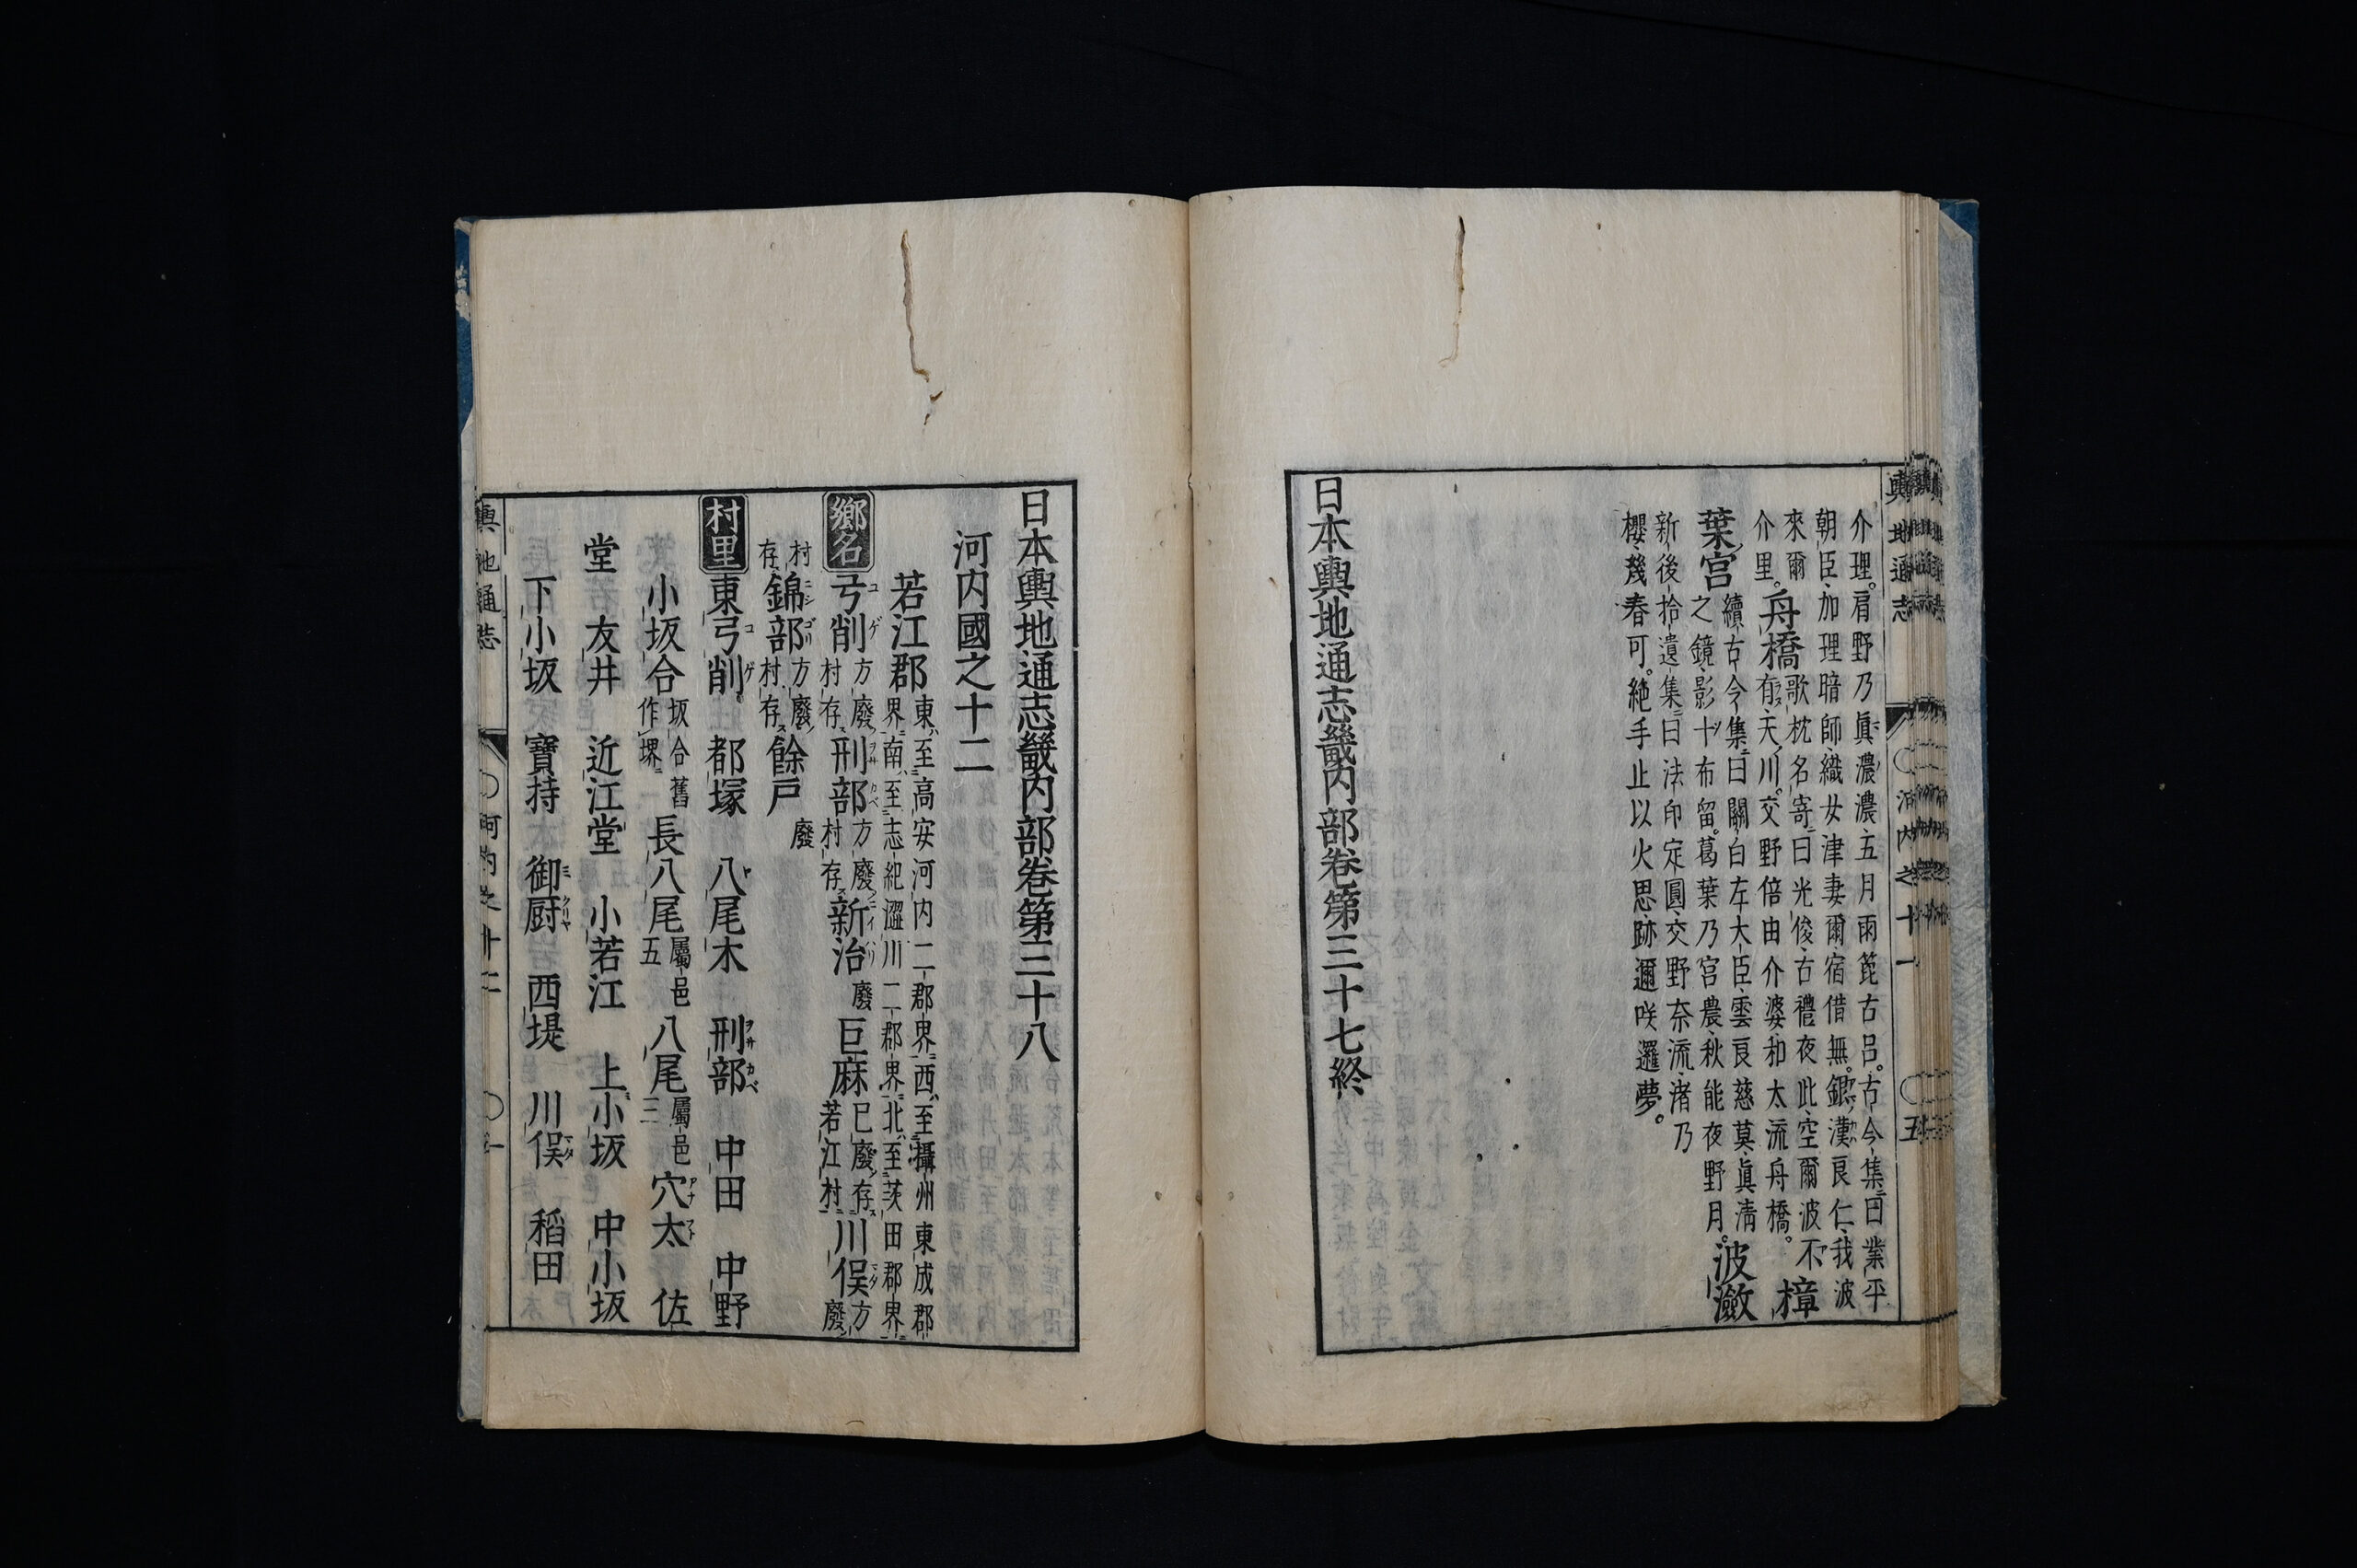 介理。肩野乃眞濃濃五月雨篦古呂。古今集曰業平
朝臣加理暗師織女津妻爾宿借無。銀漢良仁我波
來爾
介里。舟橋歌枕名寄曰光俊古禮夜此空爾波不
有天川。交野倍由介婆和太流舟橋。樟
葉宮續古今集曰關白左大臣雲良慈莫眞清
之鏡影十布留。葛葉乃宮農秋能夜野月。波瀲
新後拾遺集曰法印定圓交野奈流渚乃
櫻幾春可。絶手止以火思跡邇咲邏夢。
日本輿地通志畿内部卷第三十七終
輿地通志
河内之十一
五
日本輿地通志畿内部卷第三十八
河内國之十二
若江郡東至高安河内二郡界西至攝州東成郡
界南至志紀澀川二郡界北至茨田郡界
鄕名弓削方廢村存刑部方廢村存新治廢巨麻已廢存若江村川俣方廢
村存錦部方廢村存餘戸廢
村里東弓削 都塚 八尾木 刑部 中田 中野
小坂合坂合舊作堺長八尾屬邑五八尾屬邑三穴太 佐
堂 友井 近江堂 小若江 上小坂 中小坂
下小坂 寶持 御厨 西堤 川俣 稻田
輿地通志
河内之十二